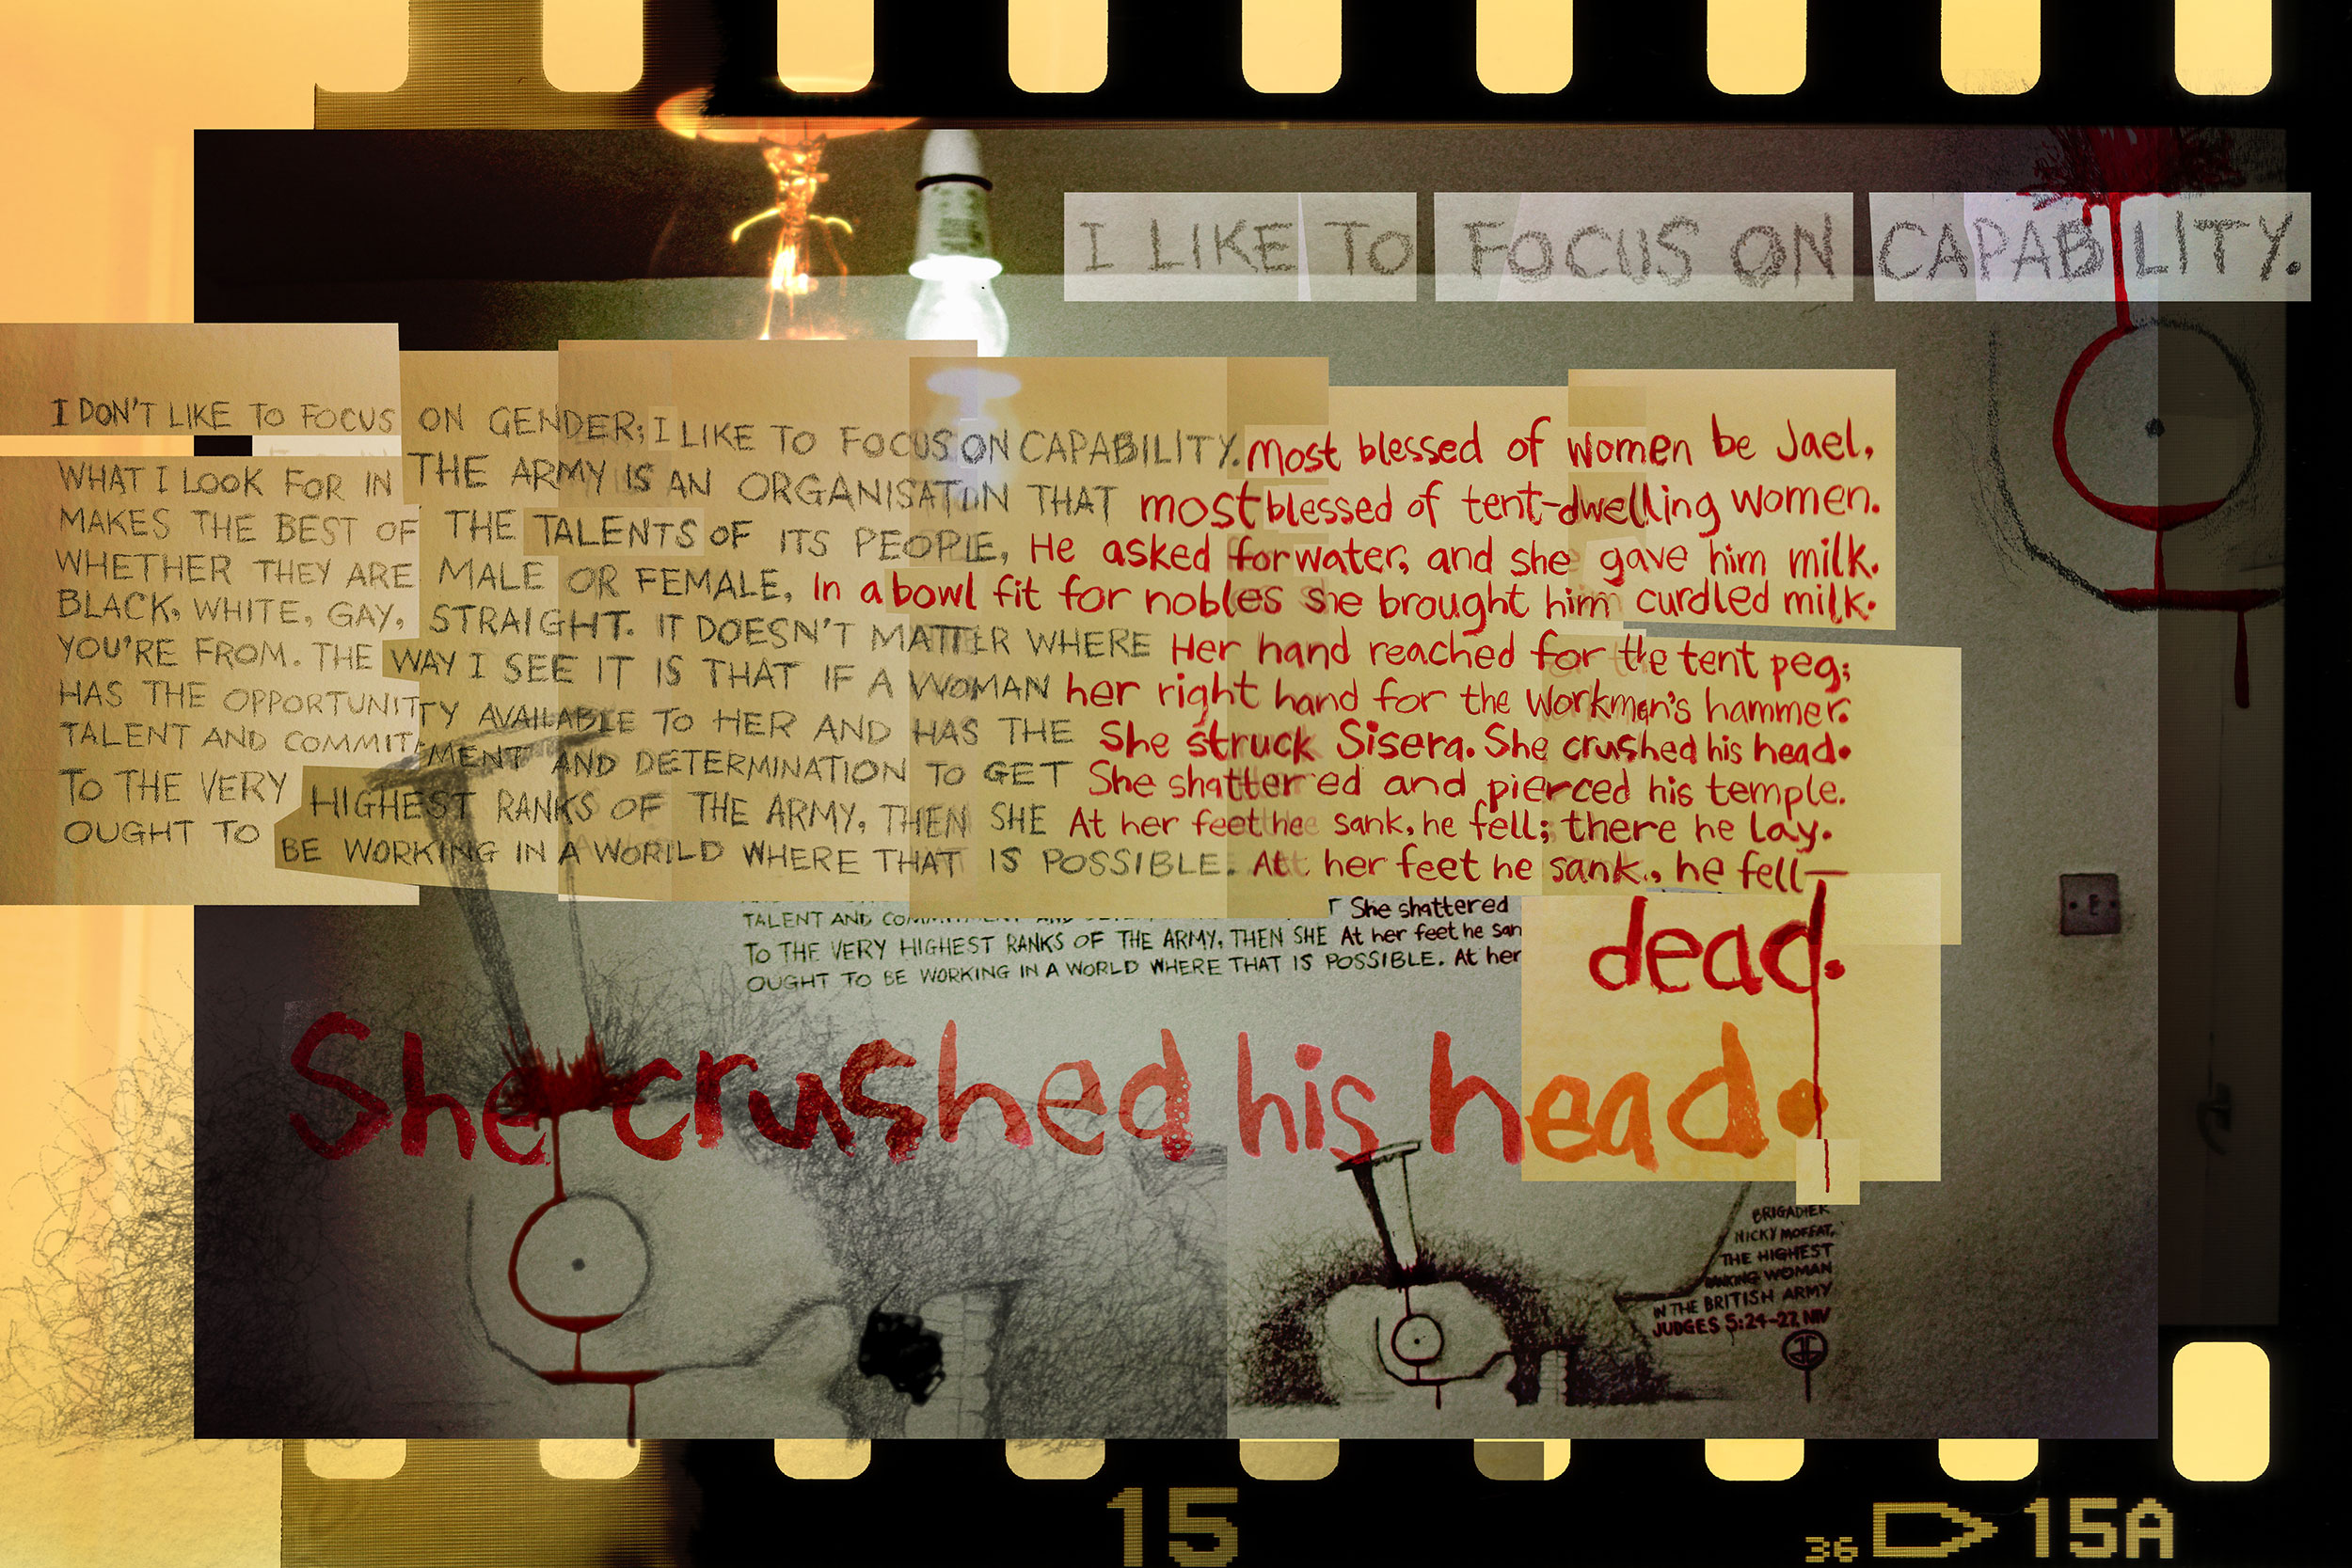 I LIKE TO FOCUS ON CAPABILITY.
I DON'T LIKE TO FOCUS ON GENDER; I LIKE TO FOCUS ON CAPABILITY. Most blessed of women be Jael,
WHAT I LOOK FOR IN THE ARMY IS AN ORGANISATION THAT most blessed of tent-dwelling women.
MAKES THE BEST OF THE TALENTS OF ITS PEOPLE, He asked for water, and she gave him milk.
WHETHER THEY ARE MALE OR FEMALE, In a bowl fit for nobles she brought him curdled milk.
BLACK, WHITE, GAY, STRAIGHT. IT DOESN'T MATTER WHERE Her hand reached for the tent peg;
YOU'RE FROM. THE WAY I SEE IT IS THAT IF A WOMAN her right hand for the workman's hammer.
HAS THE OPPORTUNITY AVAILABLE TO HER AND HAS THE She struck Sisera. She crushed his head.
TALENT AND COMMITMENT AND DETERMINATION TO GET She shattered and pierced his temple.
TO THE VERY HIGHEST RANKS OF THE ARMY, THEN SHE At her feet he sank, he fell; there he lay.
OUGHT TO BE WORKING IN A WORLD WHERE THAT IS POSSIBLE. At her feet he sank, he fell—
dead.
TALENT AND She shattered
TO THE VERY HIGHEST RANKS OF THE ARMY, THEN SHE At her feet he san
OUGHT TO BE WORKING IN A WORLD WHERE THAT IS POSSIBLE. At her
She crushed his head.
BRIGADIER
NICKY MOFFAT,
THE HIGHEST
RANKING WOMAN
IN THE BRITISH ARMY
JUDGES 5:24-27, NIV
15
36 15A